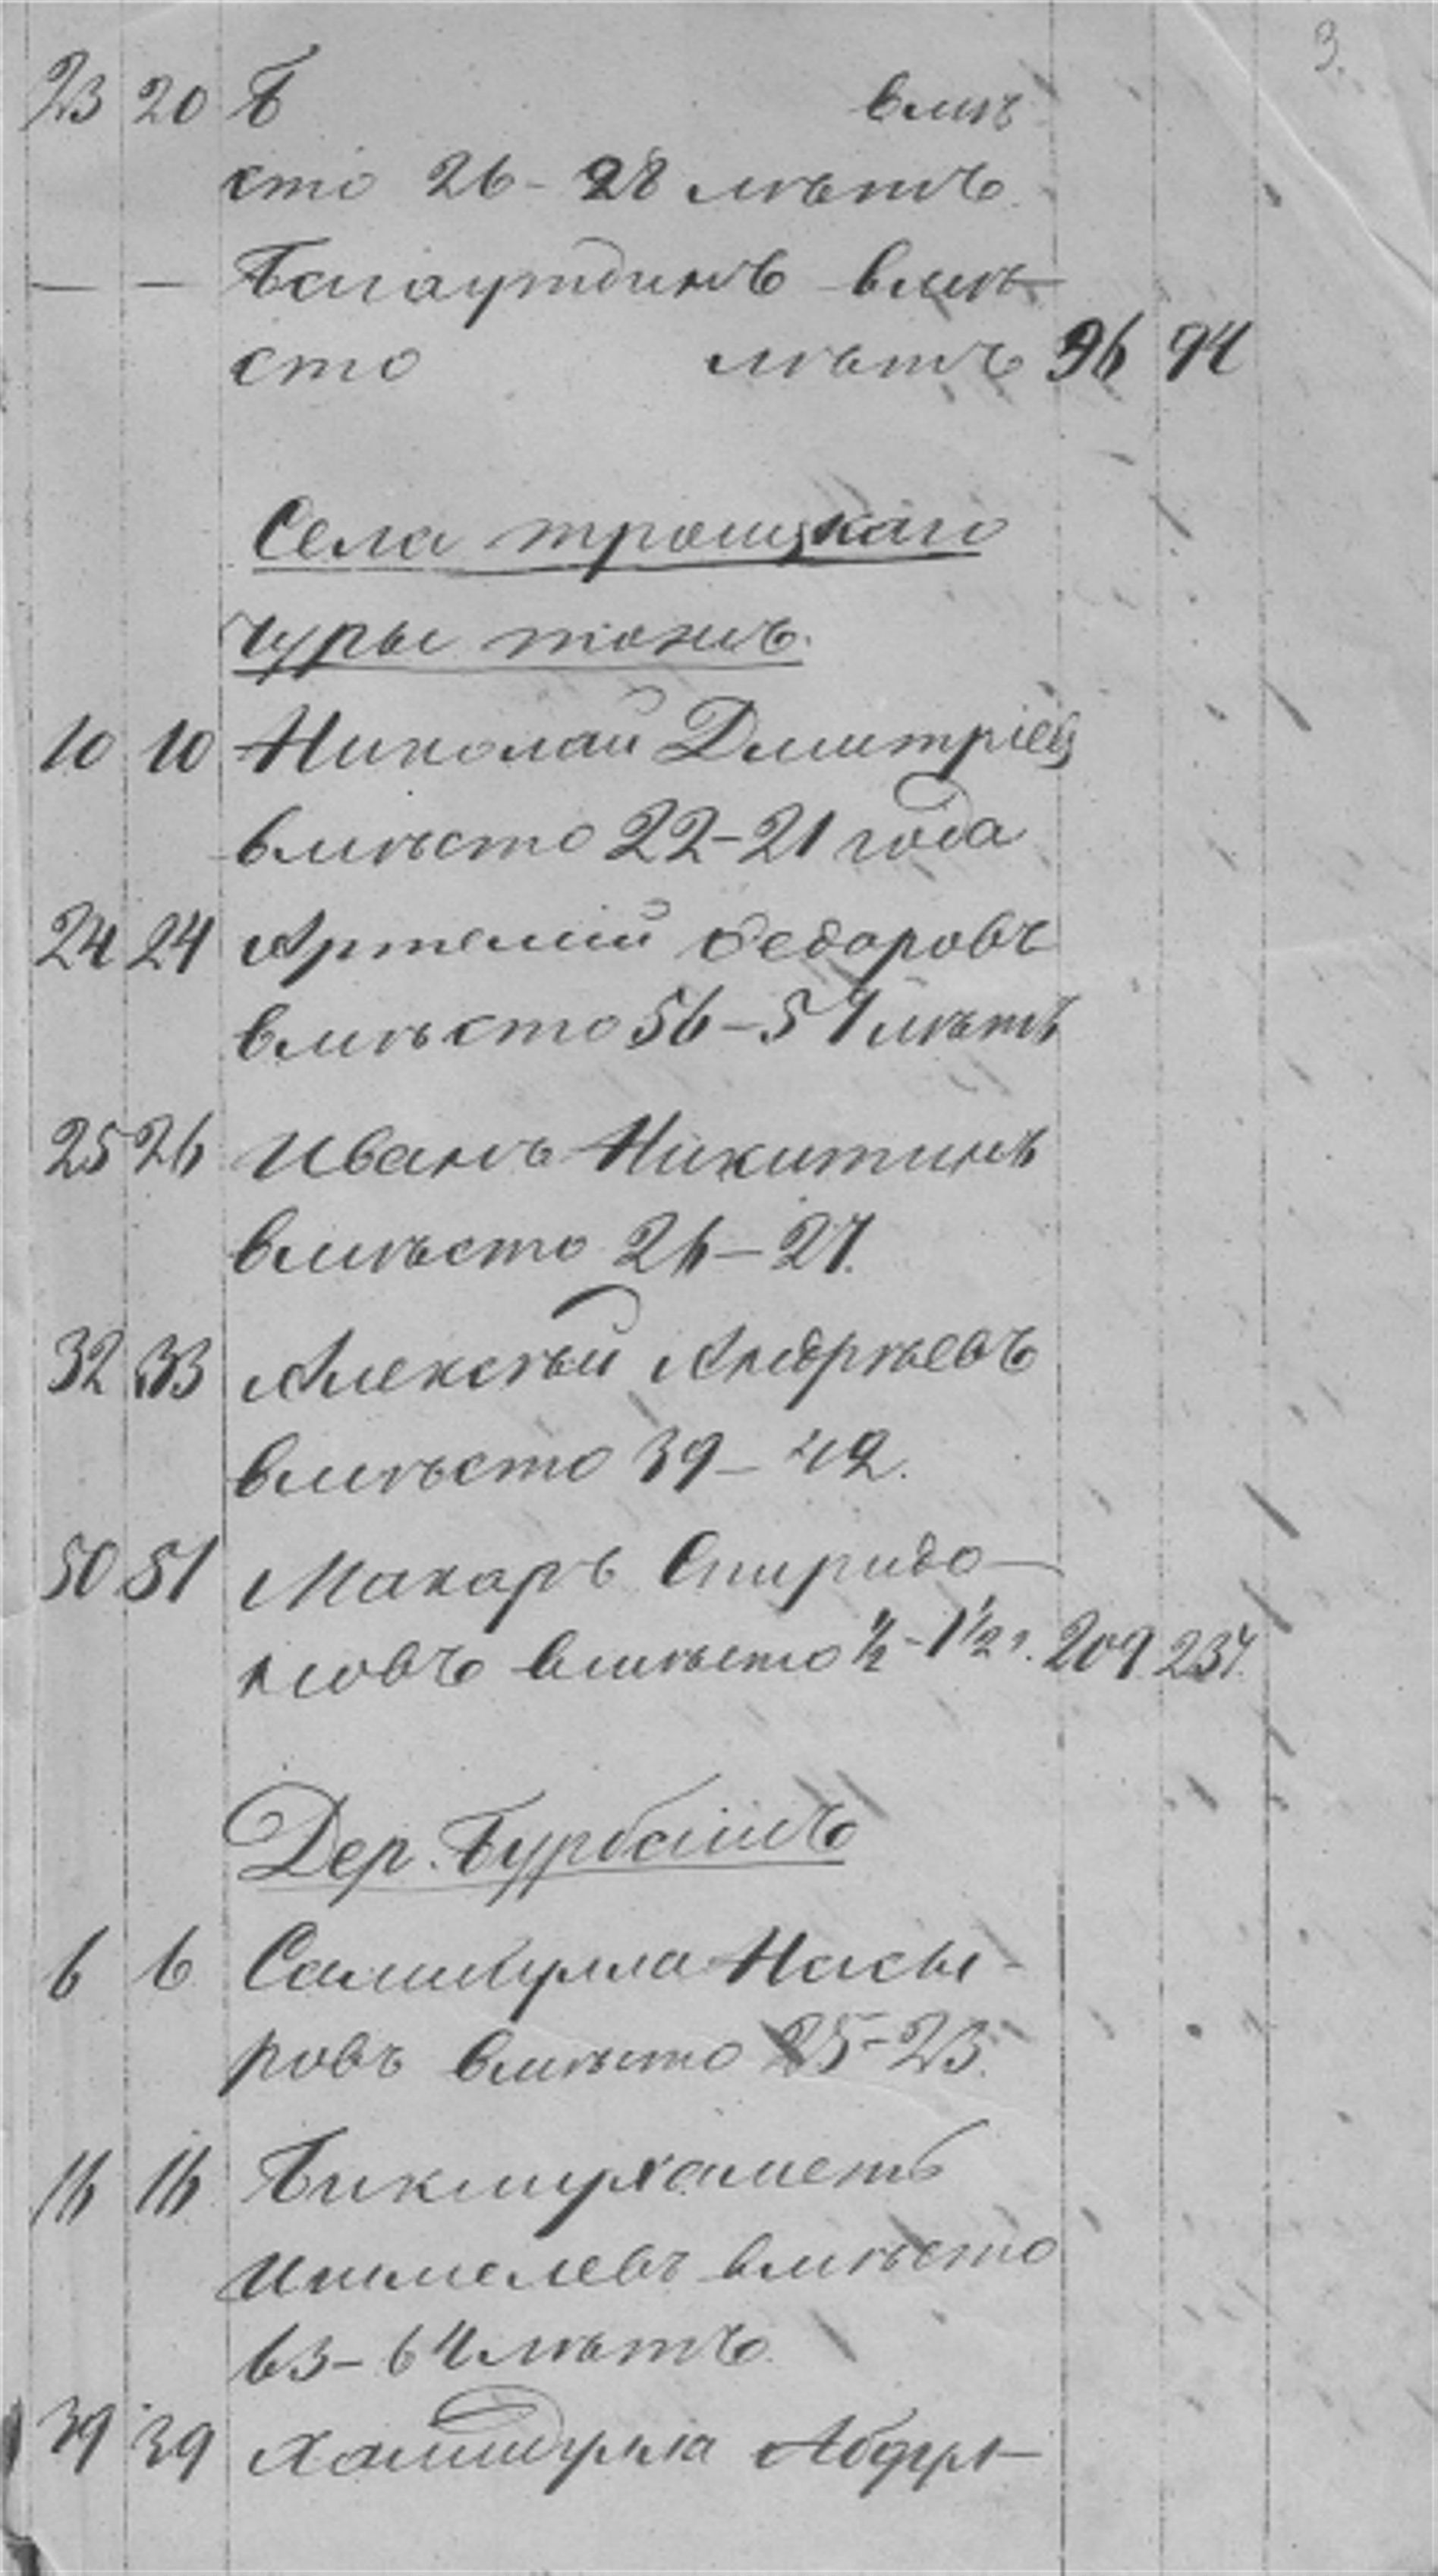 3.
23 20 Б вмѣ
сто 26 - 28 лѣтъ
— — Багаутдинъ вмѣ-
сто лѣтъ 96 94
Села троицкаго
чуры тожъ.
10 10 Николай Дмитріевъ
вмѣсто 22-21 года
24 24 Артемій Федоровъ
вмѣсто 56-57 лѣтъ
25 26 Иванъ Никитинъ
вмѣсто 26-27.
32 33 Алексѣй Андрѣевъ
вмѣсто 39-42.
50 51 Макаръ Спиридо-
новъ вмѣсто ½-1½ г. 209 237.
Дер. Бурбашъ
6 6 Салибулла Насы-
ровъ вмѣсто 25-23.
16 16 Бикмухаметъ
Ишмелевъ вмѣсто
63-64 лѣтъ
39 39 Хамидулла Абдул-